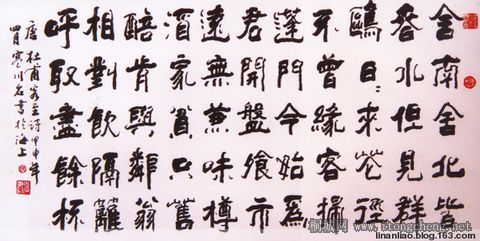 舍南舍北皆
春水但見群
鷗日〻來花徑
不曾緣客掃
蓬門今始為
君開盤飧市
遠無兼味樽
酒家貧只舊
醅肯與鄰翁
相對飲隔籬
呼取盡餘杯
唐杜甫客至詩甲申年
四月寒川石書於海上
linanliao.blog.163.com